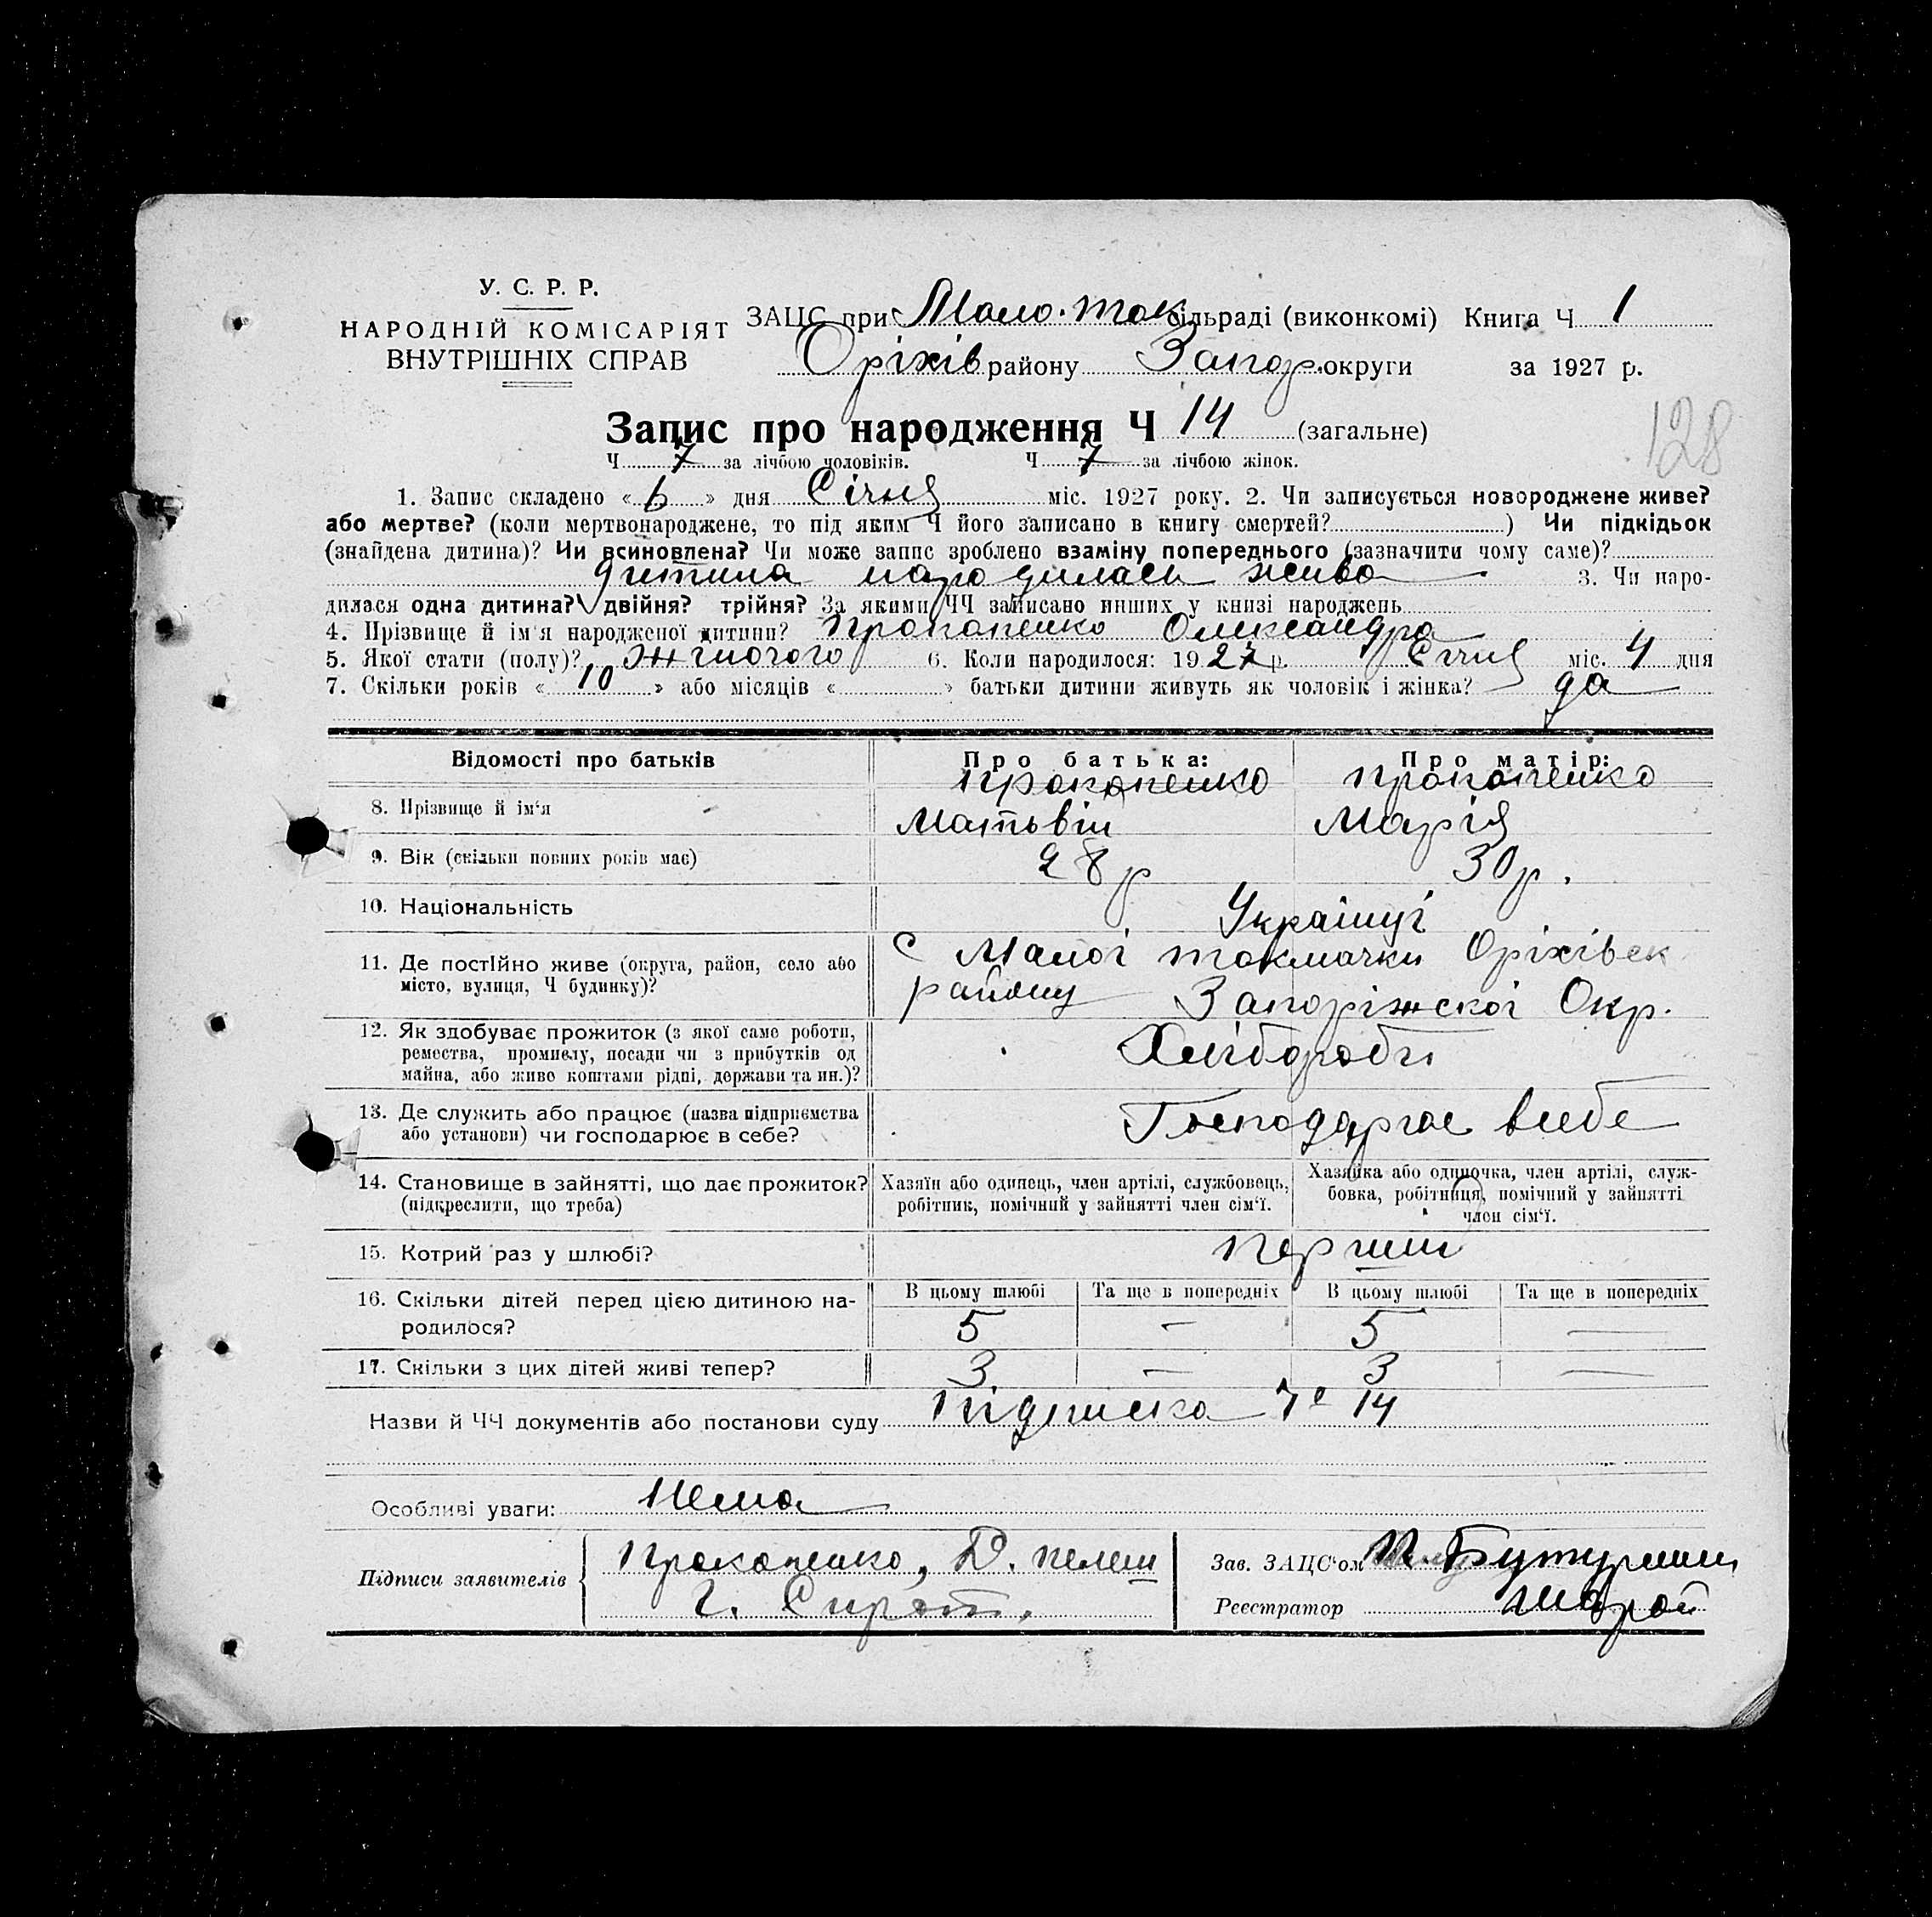 У. С. Р. Р.
НАРОДНІЙ КОМІСАРІЯТ
ВНУТРІШНІХ СПРАВ
ЗАЦС при Мало-ток сільраді (виконкомі) Книга Ч 1
Оріхів району Запор. округи за 1927 р.
128
Запис про народження Ч 14 (загальне)
Ч 7 за лічбою чоловіків. Ч 7 за лічбою жінок.
1. Запис складено « 6 » дня Січня міс. 1927 року. 2. Чи записується новороджене живе?
або мертве? (коли мертвонароджене, то під яким Ч його записано в книгу смертей? ) Чи підкідьок
(знайдена дитина)? Чи всиновлена? Чи може запис зроблено взаміну попереднього (зазначити чому саме)?
дитина народилась жива 3. Чи наро-
дилася одна дитина? двійня? трійня? За якими ЧЧ записано инших у книзі народжень
4. Прізвище й ім'я народженої дитини? Прокопенко Олександра
5. Якої стати (полу)? жіночого 6. Коли народилося: 1927 р. Січня міс. 4 дня
7. Скільки років « 10 » або місяців « » батьки дитини живуть як чоловік і жінка? да
Відомості про батьків Про батька: Про матір:
8. Прізвище й ім'я Прокопенко Матьвій Прокопенко Марія
9. Вік (скільки повних років має) 28 р 30 р.
10. Національність Українці
11. Де постійно живе (округа, район, село або
місто, вулиця, Ч будинку)?
С Малої токмачки Оріхівск
району Запоріжскої Окр.
12. Як здобуває прожиток (з якої саме роботи,
ремества, промислу, посади чи з прибутків од
майна, або живе коштами рідні, держави та ин.)?
Хлібороби
13. Де служить або працює (назва підприємства
або установи) чи господарює в себе?
Господарює вcебе
14. Становище в зайнятті, що дає прожиток?
(підкреслити, що треба)
Хазяїн або одинець, член артілі, службовець,
робітник, помічний у зайнятті член сім'ї.
Хазяйка або одиночка, член артілі, служ-
бовка, робітниця, помічний у зайнятті
член сім'ї.
15. Котрий раз у шлюбі? Перший
16. Скільки дітей перед цією дитиною на-
родилося?
В цьому шлюбі Та ще в попередніх В цьому шлюбі Та ще в попередніх
5 — 5 —
17. Скільки з цих дітей живі тепер? 3 — 3 —
Назви й ЧЧ документів або постанови суду Підписка 14
Особливі уваги: Нема
Підписи заявителів Прокопенко, Д.
Г. Сирот.
Зав. ЗАЦС'ом
Реєстратор